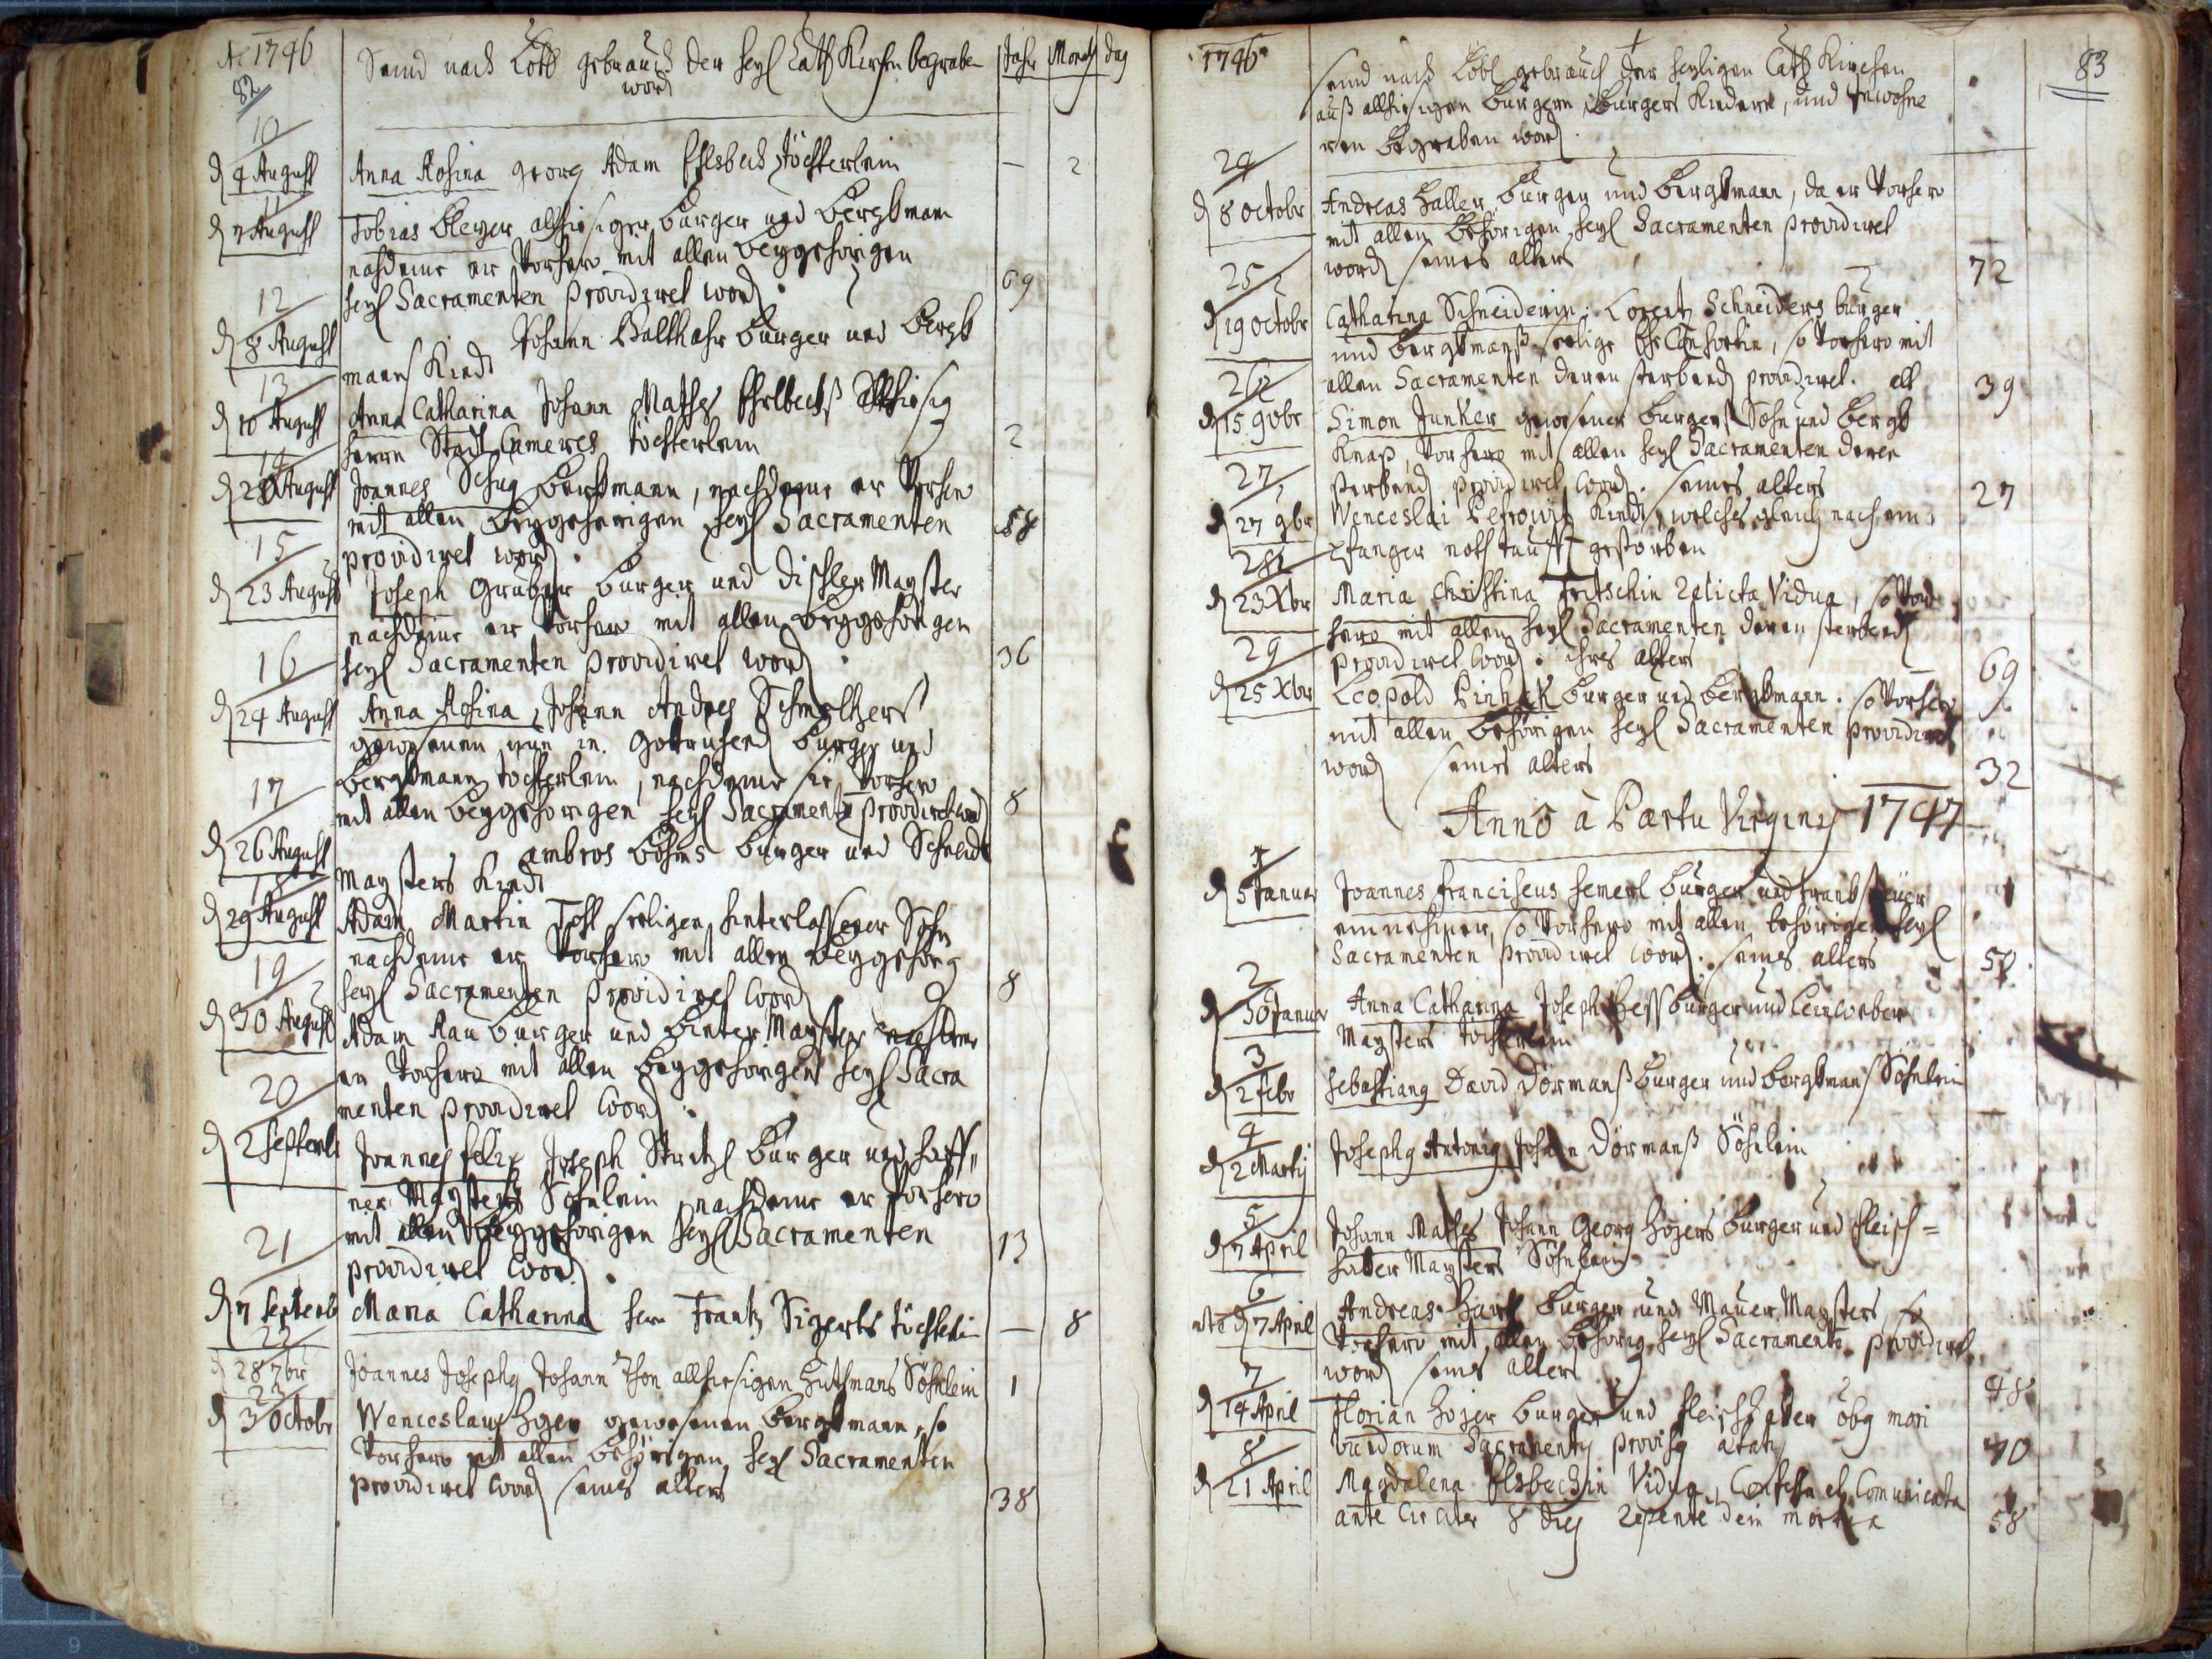 Ao 1746
82
Seind nach Löbl gebrauch der heyl Cath Kirchen begraben
word
Jahr Monath dag
10
d 4 August Anna Rosina Georg Adam Elsbeck töchterlein — 2
11
d 7 August Tobias Bleyer allhiesiger burger und bergkmann
nachdeme er vorhero mit allen beygehörigen
heyl Sacramenten providiret word 69
12
d 8 August Johann Balthasar burger und bergk
manns Kindt
13
d 10 August Anna Catharina Johann Mathes allhiesig
herrn Stadt töchterlein 2
14
d August Joannes Schug berckmann, nachdeme er vorhero
mit allen beygehörigen heyl Sacramenten 58
providiret word
15
d 23 August Joseph Gruber burger und dischler Mayster
nachdeme er vorhero mit allen beygehörigen
heyl Sacramenten providiret word 36
16
d 24 August Anna Rosina, Johann Andres Schmeltzers
gewesenen nun in Gottruhend burger und
bergkmann töchterlein, nachdeme sie vorhero
mit allen beygehörigen heyl Sacramenten providiret word 8
17
d 26 August ambros Böhms burger und Schneider
Maysters Kindt
18
d 29 August Adam Martin seeligen hinterlassener Sohn
nachdeme er vorhero mit allen beygehörig
heyl Sacramenten providiret word 8
19
d 30 August Adam Rau burger und binter Mayster nachdeme
er vorhero mit allen beygehörigen heyl Sacra
menten providiret word
20
d 2 Septemb Joannes felix Joseph burger und haff„
ner Maysters Söhnlein nachdeme er vorhero
mit allen beygehörigen heyl Sacramenten 13
providiret word
21
d 7 Septemb Maria Catharina herr Frantz Sigerts töchterlein — 8
22
d 28 7br Joannes Josephus Johann Thon allhiesigen Huthmans Söhnlein 1
23
d 3 Octobr Wenceslaus gewesenen bergkmann, so
vorhero mit allen behörigen heyl Sacramenten
providiret word seines alters 38
1746
83
seind nach Löbl gebrauch der heyligen Cath Kirchen
auß allhiesigen burgern, burgers Kindern, und Inwohne
ren begraben word
24
d 8 octobr Andreas Haller burger und bergkmann, da er vorhero
mit allen behörigen heyl Sacramenten providiret
word seines alters 72
25
d 19 octobr Catharina Schneiderin, Lorentz Schneiders burger
und bergkmanß seelige Ehe Consortin, so vorhero mit
allen Sacramenten deren sterbend providiret. alt 39
26
d 15 9vbr Simon Junker gewesener burgers Sohn und bergk
knap, vorhero mit allen heyl Sacramenten deren
sterbend providiret word. seines alters 27
27
d 27 9br Wenceslai Kindt, welches gleich nach em
pfanger noth tauff gestorben
28
d 23 Xbr Maria Christina Fritschin relicta Vidua, so vor
hero mit allen heyl Sacramenten deren sterbend
providiret word. ihres alters 69
29
d 25 Xbr Leopold burger und bergkmann. so vorhero
mit allen behörigen heyl Sacramenten providiret
word seines alters 32
Anno à Partu Virginis 1747
1
d 5 Januar Joannes franciscus burger und tranksteuer
einnehmer, so vorhero mit allen behörigen heyl
Sacramenten providiret word. seines alters
2
d 30 Januar Anna Catharina Joseph Hess burger und Leinweber
Maysters töchterlein
3
d 2 febr Sebastianus David Dörmanß burger und bergkmans Söhnlein
4
d 2 Martij Josephus Antonius Johann Dörmanß Söhnlein
5
d 7 April Johann Mathes Johann Georg Hojers burger und fleisch=
haker Maysters Söhnlein
6
d 7 April Andreas burger und Maurer Maysters so
vorhero mit allen behörig heyl Sacramente providiret
word seines alters 48
7
d 14 April Florian Hojer burger und fleischhaker mori
bundorum Sacramentis provisus ætatis 70
8
d 21 April Magdalena Elsbeckin Vidua, Confessa et Comunicata
ante circiter 8 dies repente dein mortua 58